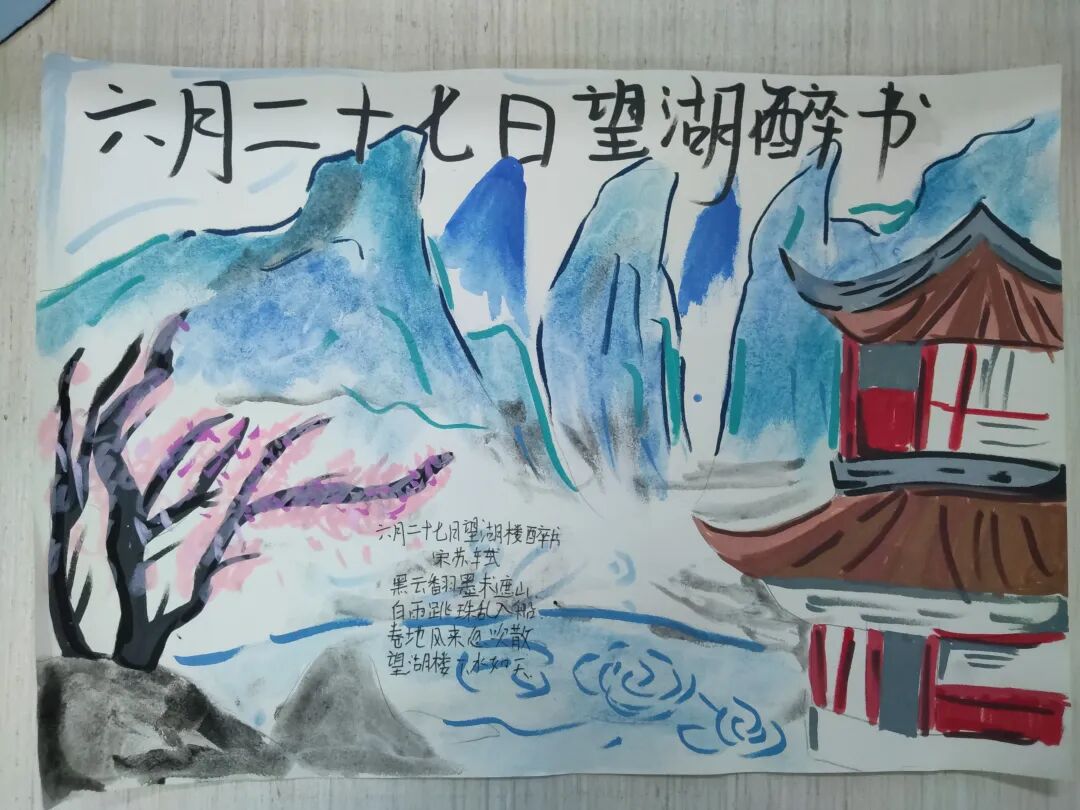 六月二十七日望湖醉书
六月二十七日望湖楼醉书
宋苏轼
黑云翻墨未遮山
白雨跳珠乱入船
卷地风来忽吹散
望湖楼下水如天